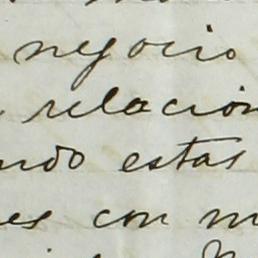 negocio
relacion
ndo estas
es con m